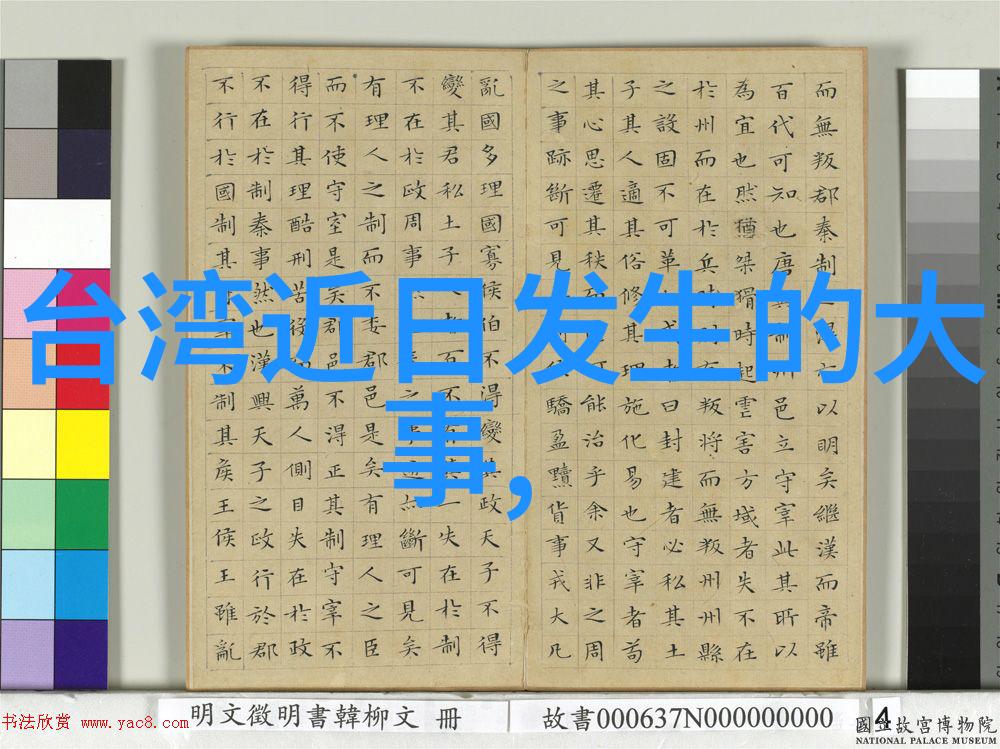 而無叛郡秦制得亦以明矣繼漢而帝雖
百代可知也唐制州邑立守宰此其所以
為宜也然猶桀猾時起虐害方域者失不在
於州而在於兵叛將而無叛州州縣
之設固不可革曰封建者必私其土
子其人適其俗修其理施化易也守宰者苟
其心思遷其秩能治乎余又非之周
之事跡斷可見驕盈黷貨事戎大凡
亂國多理國寡侯伯不得變其政天子不得
變其君私土子百不有一失在於制
不在於政周事之事迹亦斷可見矣
有理人之制而不委郡邑是矣有理人之臣
而不使守宰是矣郡邑不得正其制守宰不
得行其理酷刑苦役萬人側目失在於政
不在於制秦事然也漢興天子之政行於郡
不行於國制其不制其侯王侯王雖亂
台湾近日发生的大
事,
书法欣赏 www.yac8.com
明文徵明書韓柳文 冊
故書000637N000000000
4
國立故宮博物院
NATIONAL PALACE MUSEUM